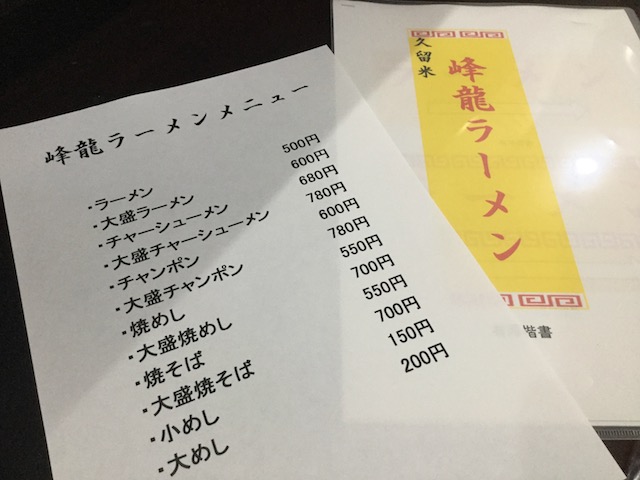 峰龍ラーメンメニュー
・ラーメン 500円
・大盛ラーメン 600円
・チャーシューメン 680円
・大盛チャーシューメン 780円
・チャンポン 600円
・大盛チャンポン 780円
・焼めし 550円
・大盛焼めし 700円
・焼そば 550円
・大盛焼そば 700円
・小めし 150円
・大めし 200円
久留米
峰龍ラーメン
楷書